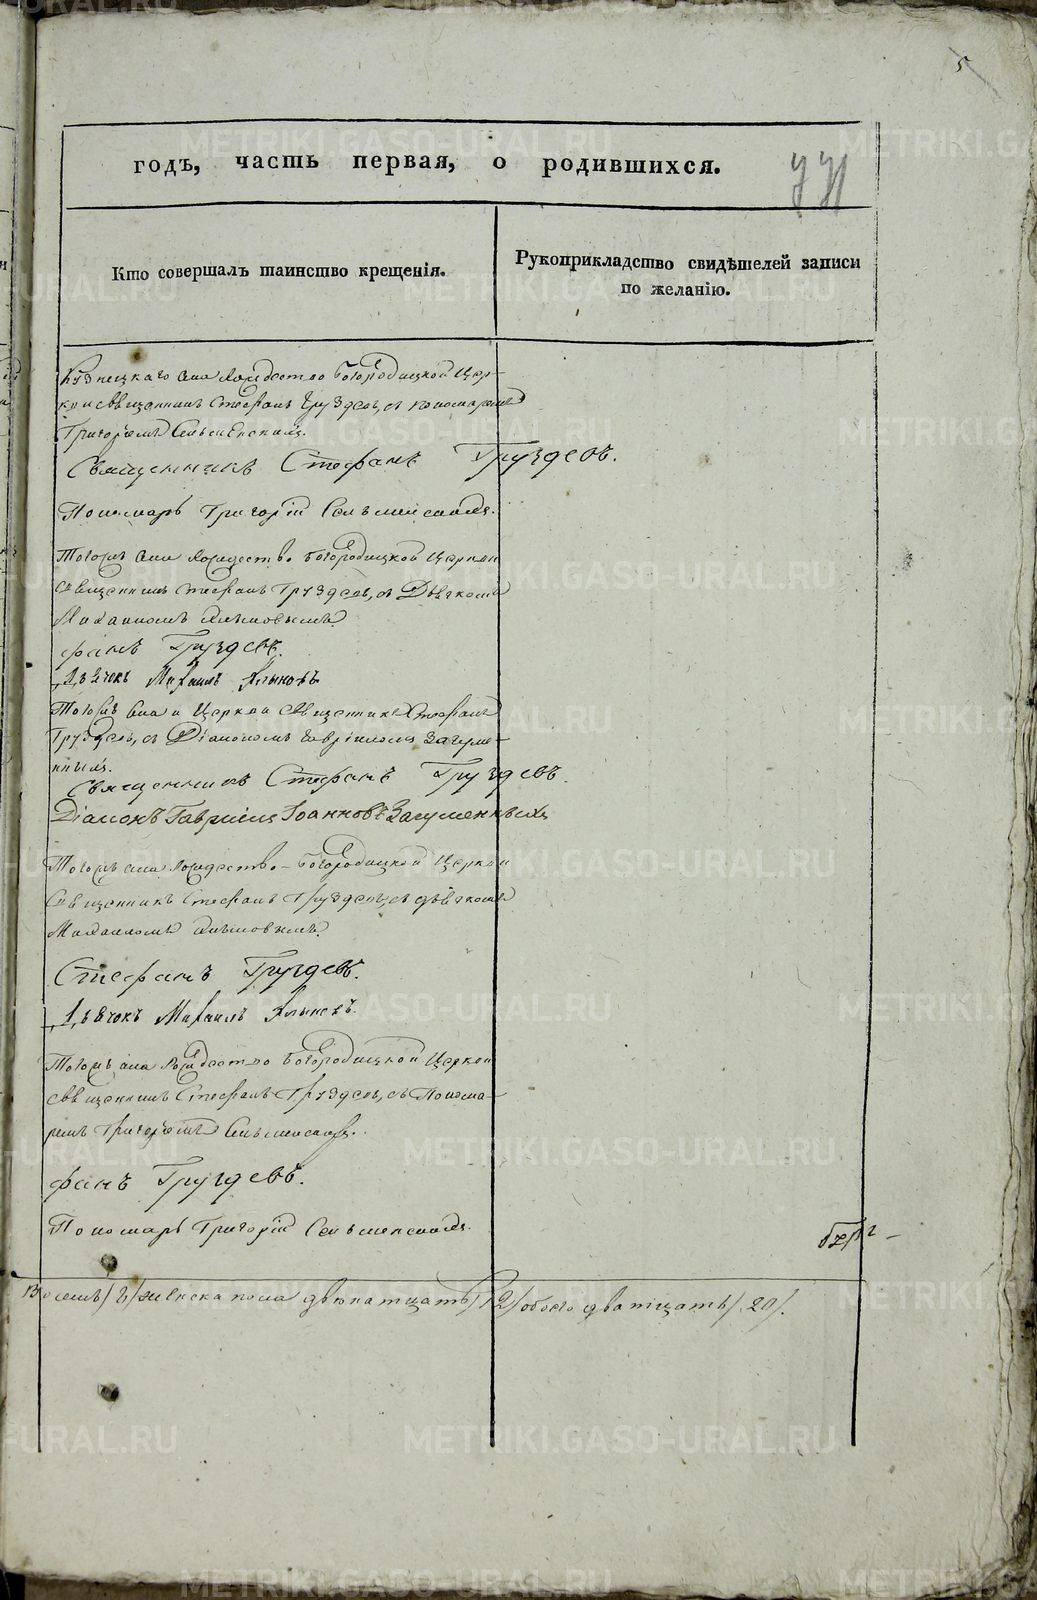 5
годъ, часть первая, о родившихся.
Кто совершалъ таинство крещенія.
Рукоприкладство свидѣтелей записи
по желанію.
Кузнецкаго села Рождество Богородицкой Цер-
кви священникъ Стефанъ Груздевъ, съ пономаремъ
Григорьемъ
Священникъ Стефанъ Груздевъ.
Пономарь Григорій
Тогожъ села Рождество Богородицкой Церкви
священникъ Стефанъ Груздевъ, съ Дьячкомъ
Михаиломъ
фанъ Груздевъ.
Дьячокъ Михаилъ
Тогожъ села и Церкви священникъ Стефанъ
Груздевъ, съ Діакономъ Гавріиломъ Загуме-
ннымъ.
Священникъ Стефанъ Груздевъ.
Діаконъ Гавриилъ Іоанновъ Загуменныхъ
Тогожъ села Рождество-Богородицкой Церкви
Священникъ Стефанъ Груздевъ, съ дьячкомъ
Михаиломъ
Стефанъ Груздевъ.
Дьячокъ Михаилъ
Тогожъ села Рождество Богородицкой Церкви
священникъ Стефанъ Груздевъ, съ Понома-
ремъ Григорьемъ
фанъ Груздевъ.
Пономарь Григорій
Восемь /8/ женска пола двенатцать /12/ обоего дватцать /20/.
METRIKI.GASO-URAL.RU